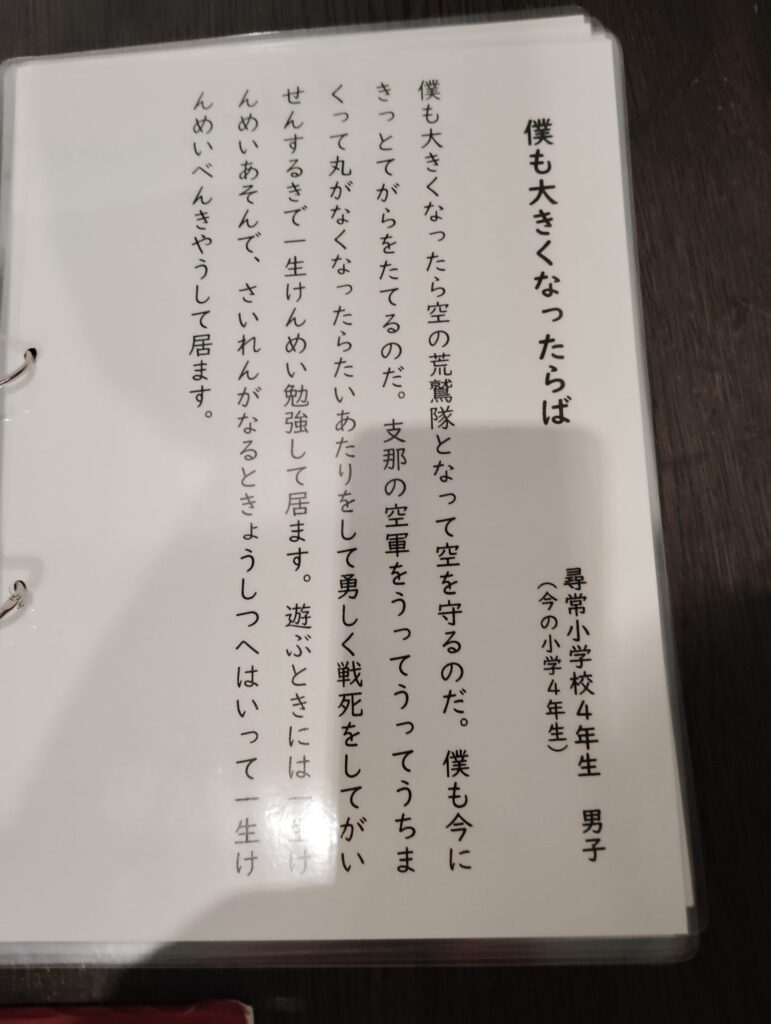 僕も大きくなったらば
尋常小学校4年生　男子
（今の小学4年生）
僕も大きくなったら空の荒鷲隊となって空を守るのだ。僕も今に
きっとてがらをたてるのだ。支那の空軍をうってうってうちま
くって丸がなくなったらたいあたりをして勇しく戦死をしてがい
せんするきで一生けんめい勉強して居ます。遊ぶときには一生け
んめいあそんで、さいれんがなるときょうしつへはいって一生け
んめいべんきやうして居ます。